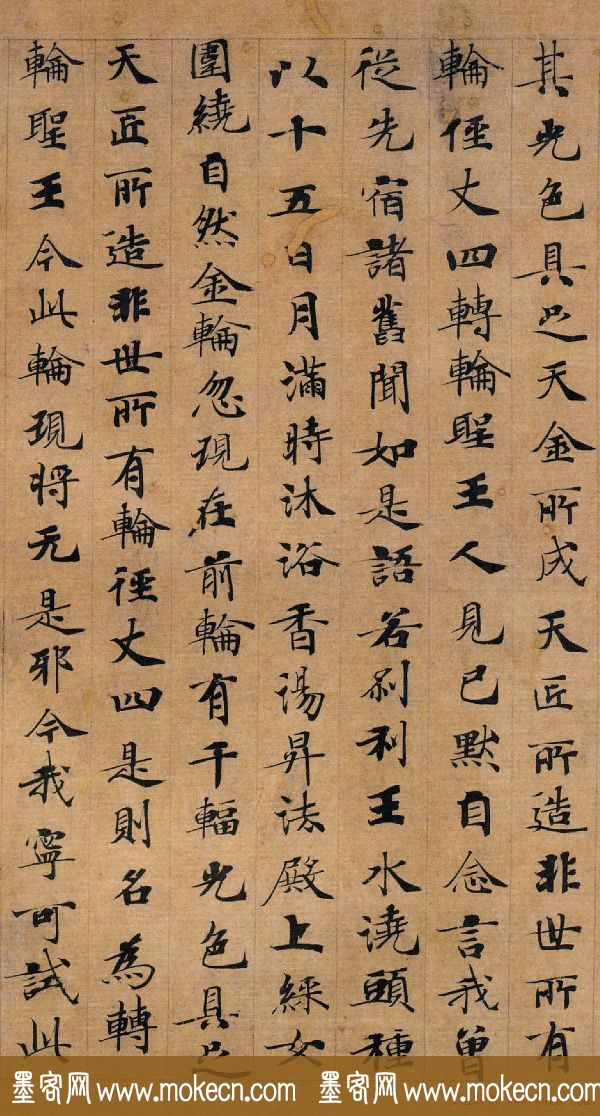 其光色具足天金所成天匠所造非世所有
輪俓丈四轉輪聖王人見已默自念言我曾
從先宿諸舊聞如是語若剎利王水澆頭種
以十五日月滿時沐浴香湯昇法殿上綵女
圍繞自然金輪忽現在前輪有千輻光色具足
天匠所造非世所有輪徑丈四是則名為轉
輪聖王今此輪現将无是邪今我寧可試此
墨客网 www.mokecn.com 墨客网 www.mokecn.com